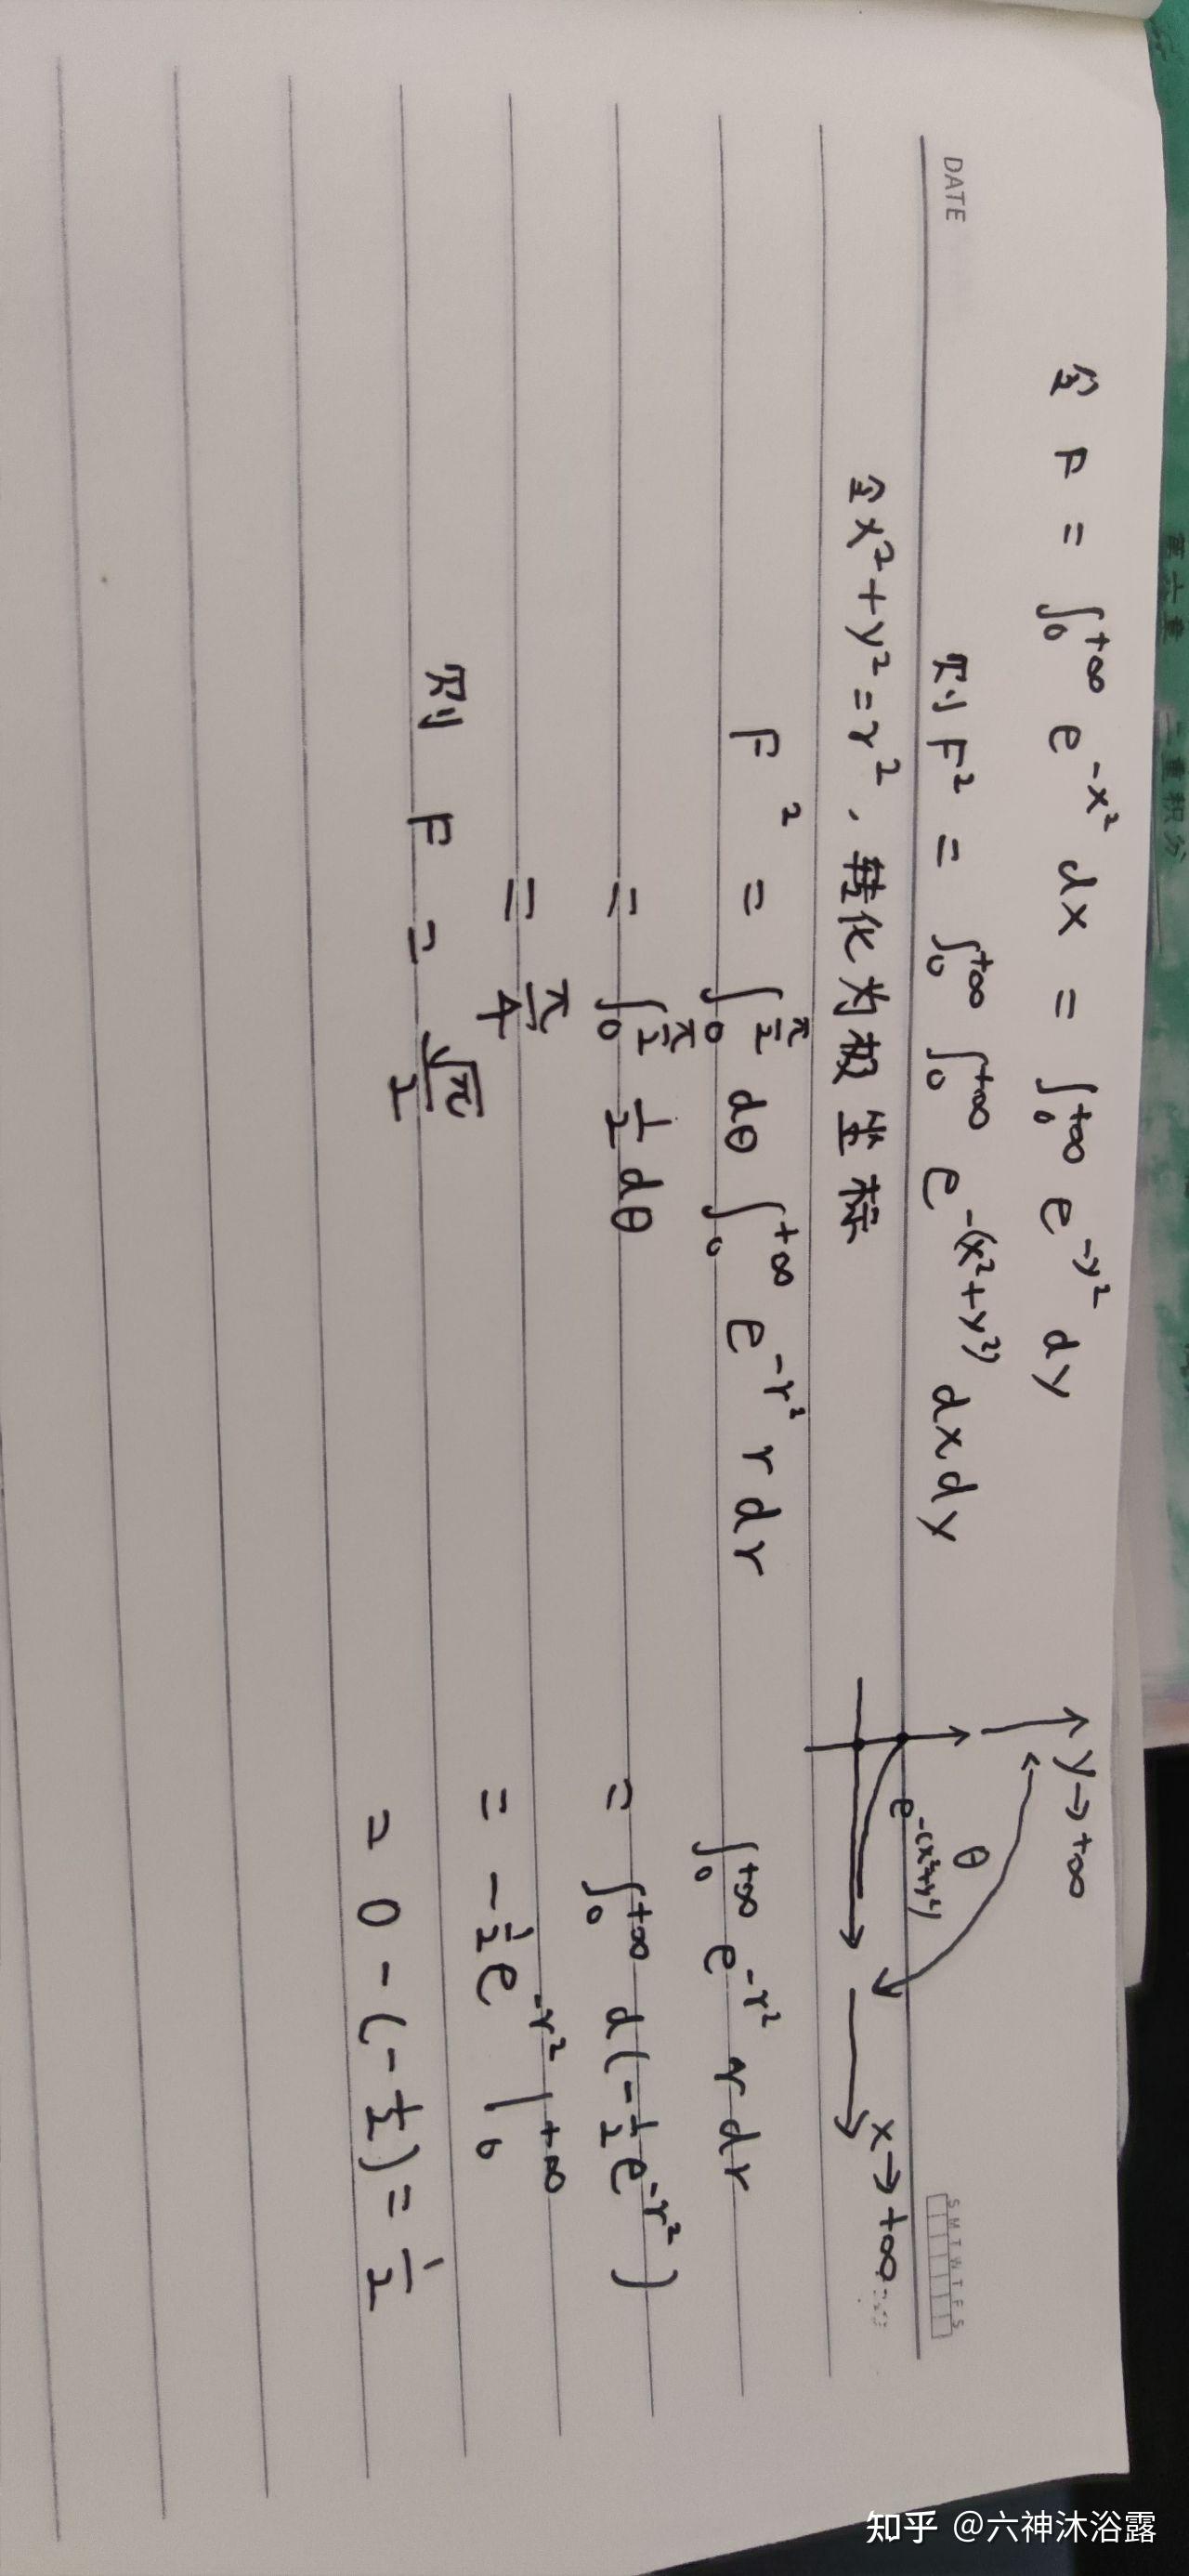 DATE
S M T W T F S
令 F = ∫₀^{+∞} e^{-x²} dx = ∫₀^{+∞} e^{-y²} dy
则 F² = ∫₀^{+∞} ∫₀^{+∞} e^{-(x²+y²)} dxdy
令 x²+y²=r², 转化为极坐标
F² = ∫₀^{π/2} dθ ∫₀^{+∞} e^{-r²} r dr
= ∫₀^{π/2} 1/2 dθ
= π/4
则 F = √π/2
y→+∞
θ
e^{-(x²+y²)}
x→+∞
∫₀^{+∞} e^{-r²} r dr
= ∫₀^{+∞} d(-1/2 e^{-r²})
= -1/2 e^{-r²} |₀^{+∞}
= 0 - (-1/2) = 1/2
二重积分
知乎 @六神沐浴露